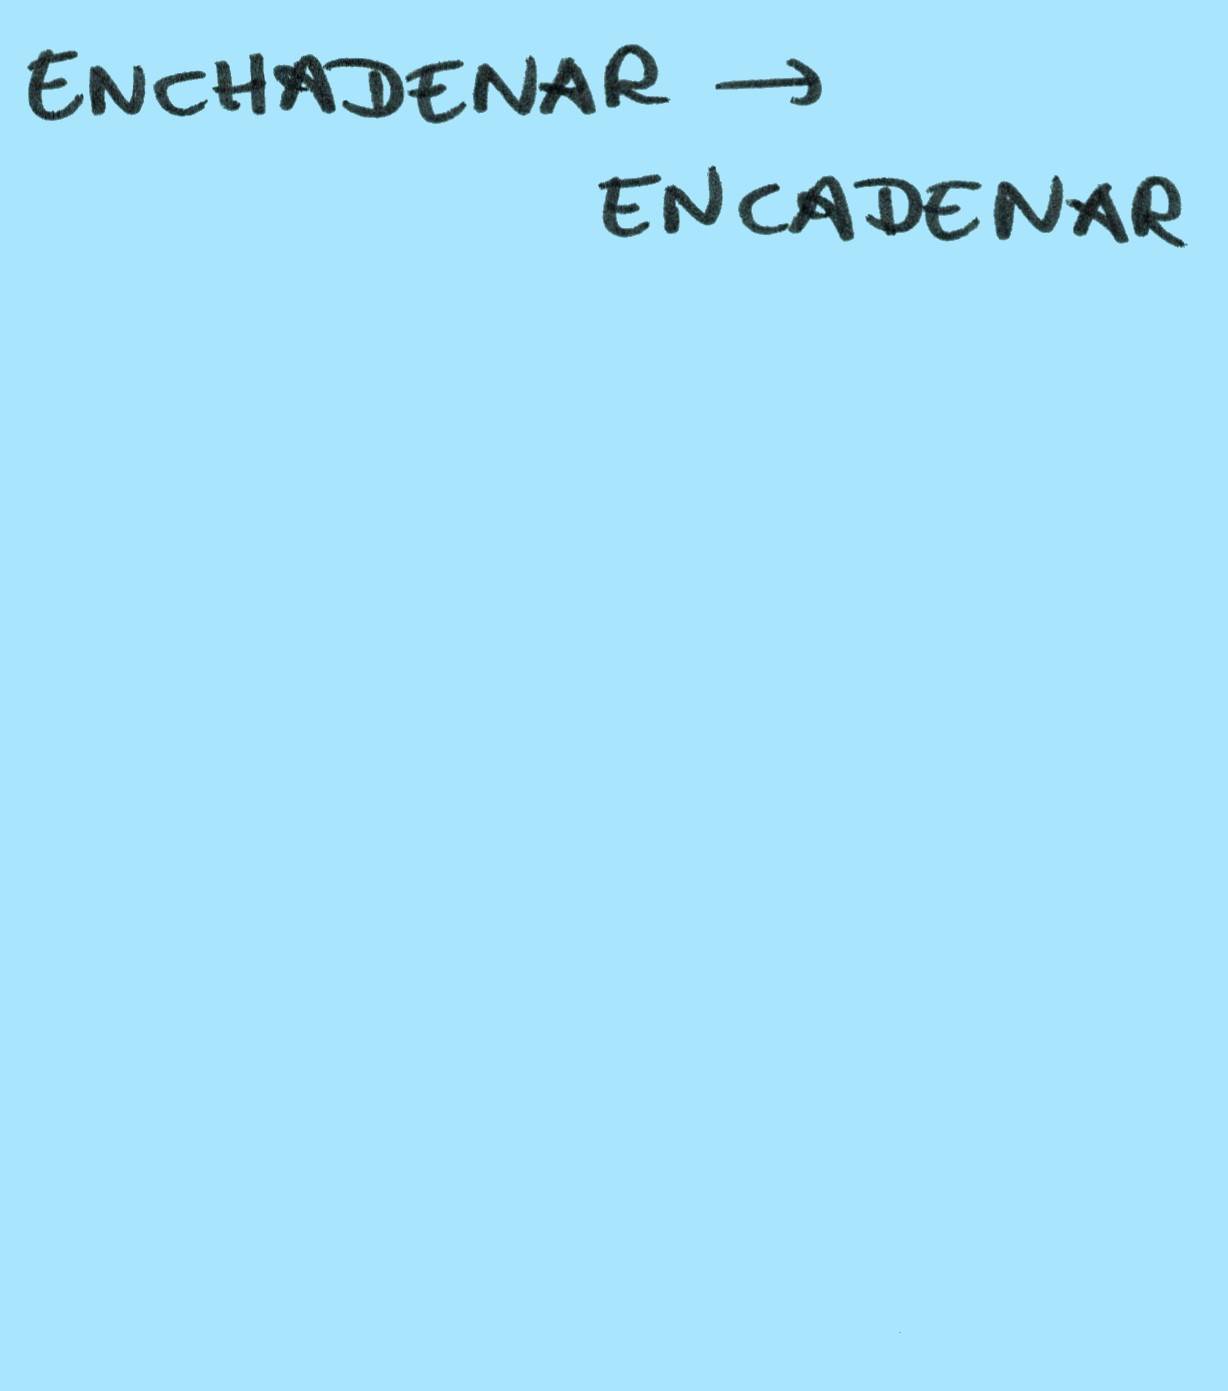 ENCHADENAR →
ENCADENAR